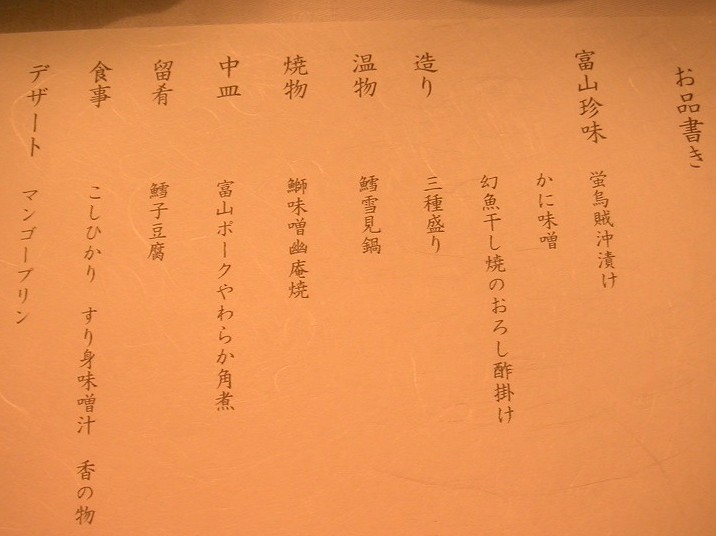 お品書き
富山珍味　蛍烏賊沖漬け
かに味噌
幻魚干し焼のおろし酢掛け
造り　三種盛り
温物　鱈雪見鍋
焼物　鰤味噌幽庵焼
中皿　富山ポークやわらか角煮
留肴　鱈子豆腐
食事　こしひかり　すり身味噌汁　香の物
デザート　マンゴープリン